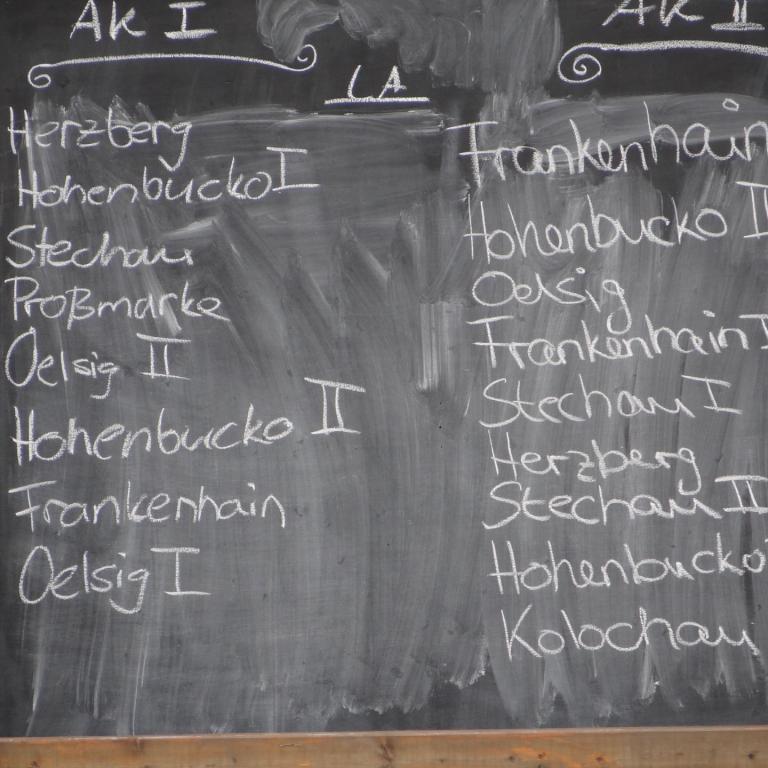 AK I
LA
Herzberg
Hohenbucko I
Stechau
Proßmarke
Oelsig II
Hohenbucko II
Frankenhain
Oelsig I
AK II
Frankenhain
Hohenbucko II
Oelsig
Frankenhain I
Stechau I
Herzberg
Stechau II
Hohenbucko
Kolochau